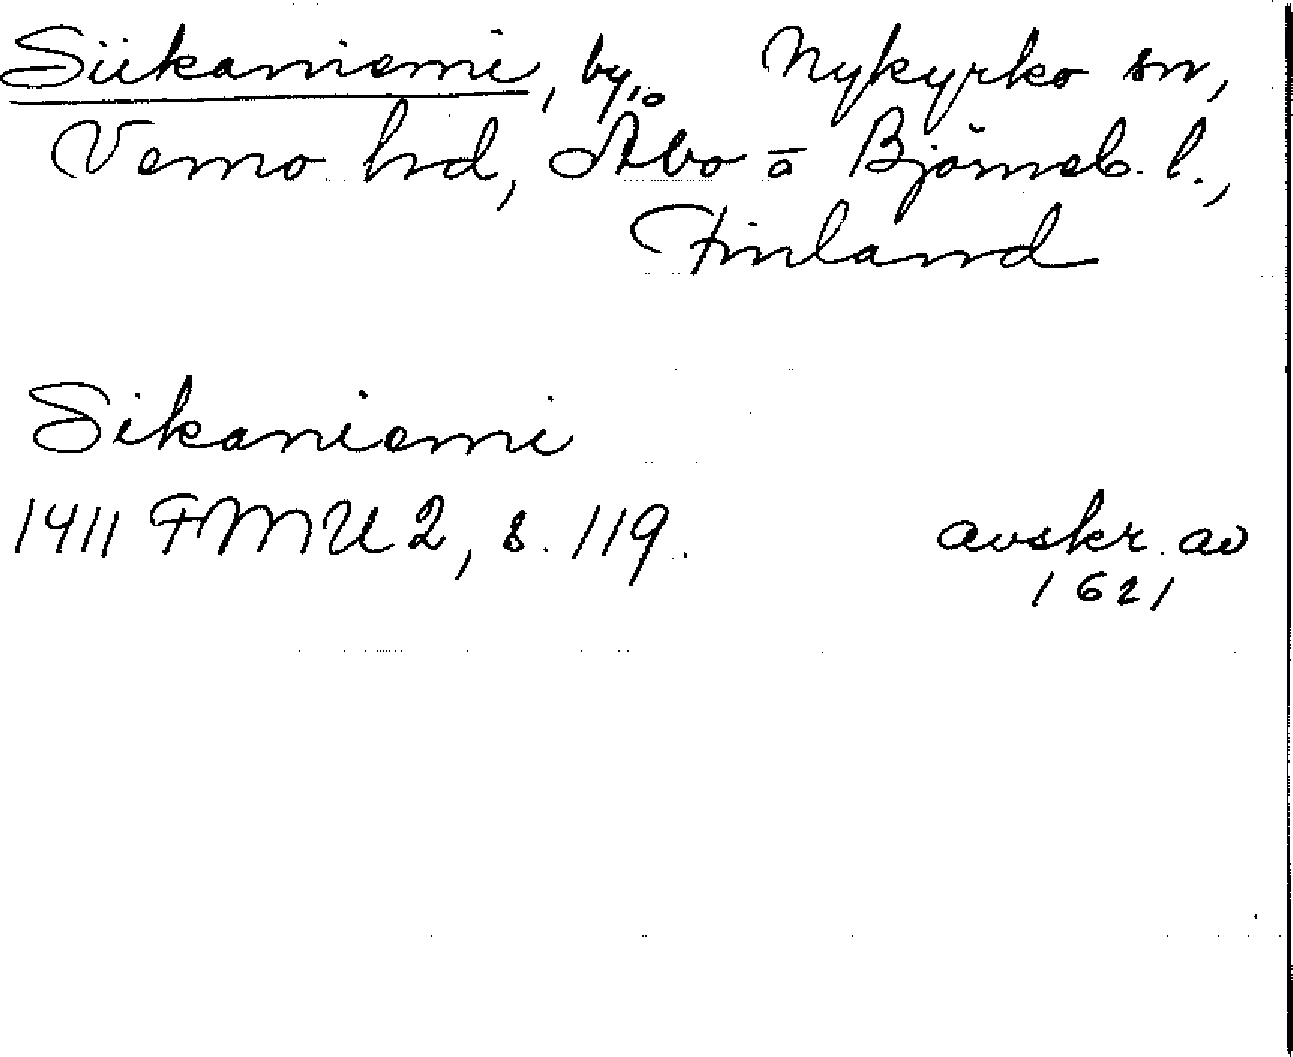 Siikaniemi, by, Nykyrko sn,
Vemo hd, Åbo o Björneb. l.,
Finland
Sikaniemi
1411 FMU 2, s. 119. avskr. av
1621